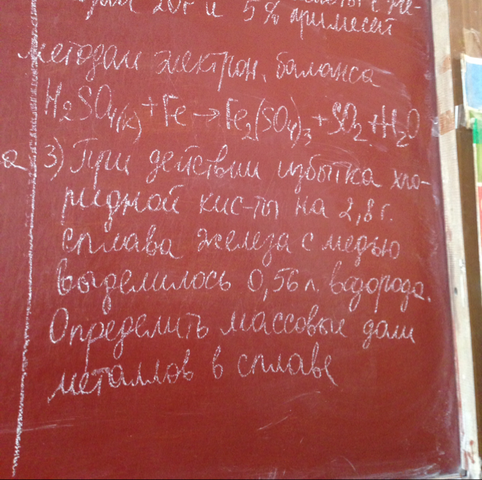 20 г и 5% примесей
методам электрон. баланса
H2SO4(к) + Fe → Fe2(SO4)3 + SO2 + H2O
3) При действии избытка хло-
ридной кис-ты на 2,8 г.
сплава железа с медью
выделилось 0,56 л. водорода.
Определить массовые доли
металлов в сплаве